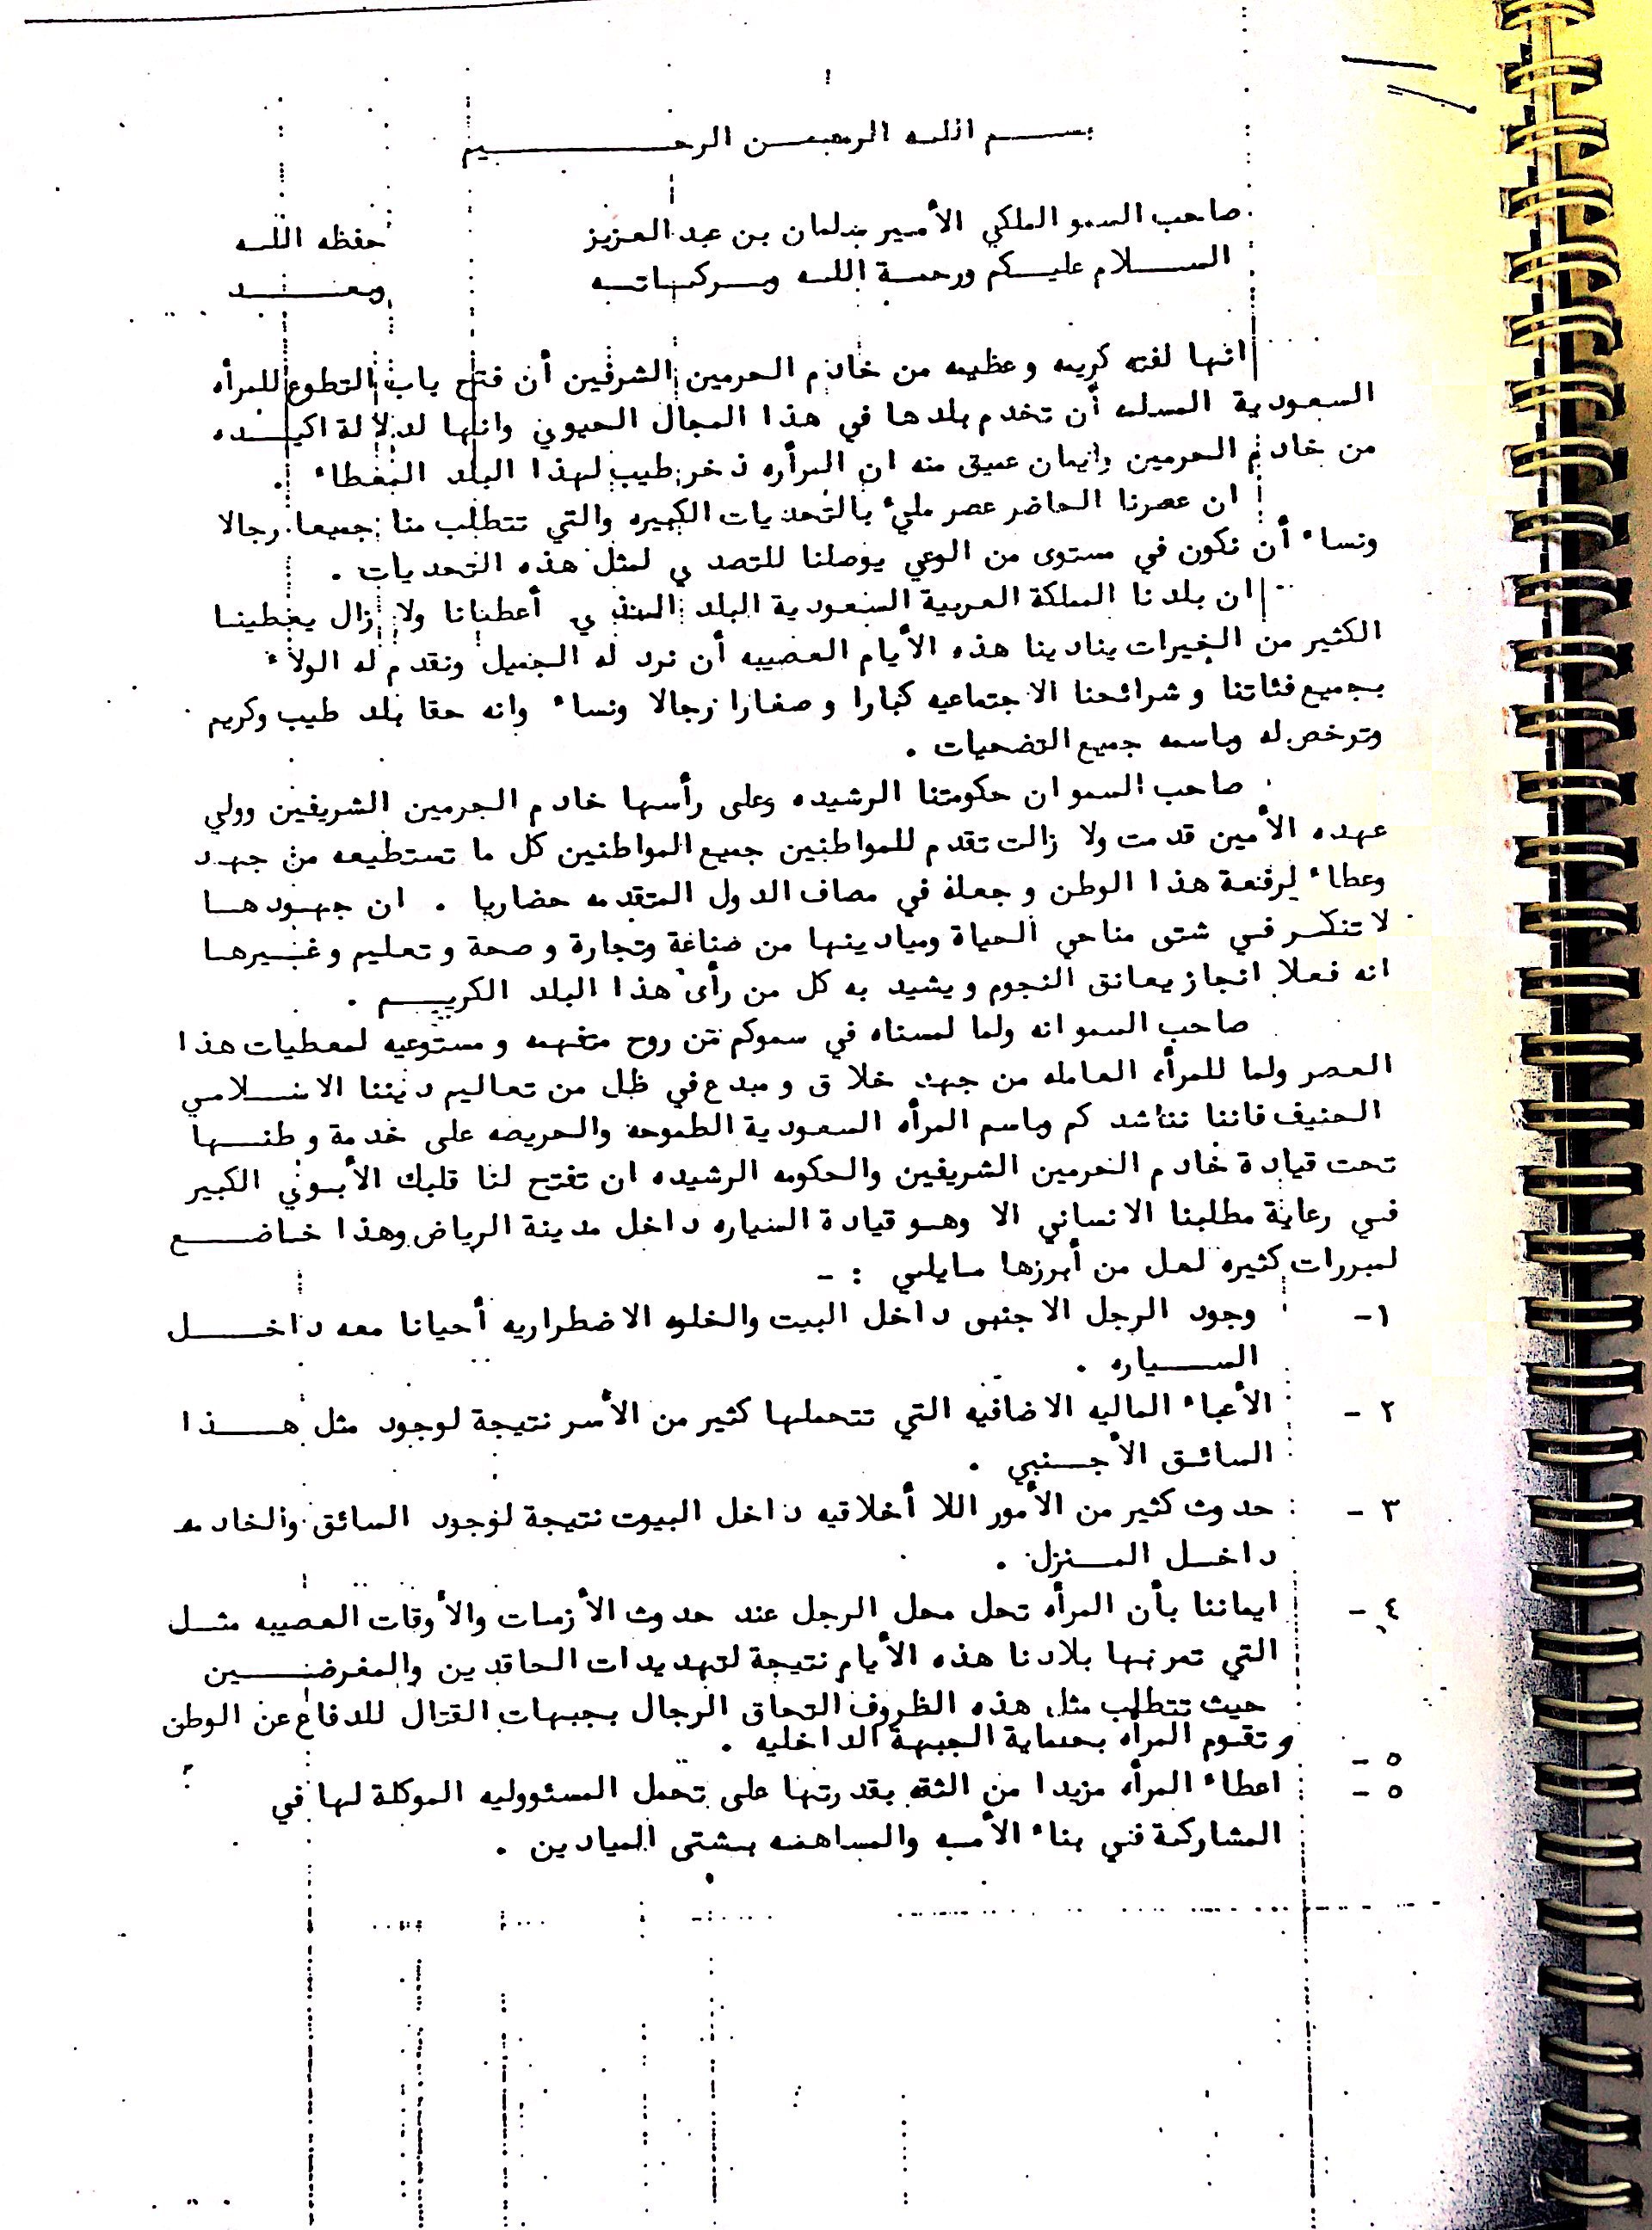 بسم الله الرحمن الرحيم
صاحب السمو الملكي الأمير سلمان بن عبد العزيز حفظه الله
السلام عليكم ورحمة الله وبركاته وبعد
انها لفته كريمه وعظيمه من خادم الحرمين الشرفين أن فتح باب التطوع للمرأه
السعودية المسلمه أن تخدم بلدها في هذا المجال الحيوي وانها لدلالة اكيده
من خادم الحرمين وايمان عميق منه ان المرأره ذخر طيب لهذا البلد المعطاء .
ان عصرنا الحاضر عصر مليء بالتحديات الكبيره والتي تتطلب منا جميعا رجالا
ونساء أن نكون في مستوى من الوعي يوصلنا للتصدي لمثل هذه التحديات .
ان بلدنا المملكة العربية السعودية البلد الذي أعطانا ولا زال يعطينا
الكثير من الخيرات ينادينا هذه الأيام العصيبه أن نرد له الجميل ونقدم له الولاء
بجميع فئاتنا وشرائحنا الاجتماعيه كبارا وصغارا رجالا ونساء وانه حقا بلد طيب وكريم
وترخص له وباسمه جميع التضحيات .
صاحب السمو ان حكومتنا الرشيده وعلى رأسها خادم الحرمين الشريفين وولي
عهده الأمين قدمت ولا زالت تقدم للمواطنين جميع المواطنين كل ما تستطيعه من جهد
وعطاء لرفعة هذا الوطن وجعله في مصاف الدول المتقدمه حضاريا . ان جهودها
لا تنكر في شتى مناحي الحياة وميادينها من صناعة وتجارة وصحة وتعليم وغيرها
انه فعلا انجاز يعانق النجوم ويشيد به كل من رأى هذا البلد الكريم .
صاحب السمو انه ولما لمسناه في سموكم من روح متفهمه ومستوعيه لمعطيات هذا
العصر ولما للمرأه العامله من جهد خلاق ومبدع في ظل من تعاليم ديننا الاسلامي
الحنيف فاننا نناشدكم وباسم المرأه السعودية الطموحه والحريصه على خدمة وطنها
تحت قيادة خادم الحرمين الشريفين والحكومه الرشيده ان تفتح لنا قلبك الأبوي الكبير
في رعاية مطلبنا الانساني الا وهو قيادة السياره داخل مدينة الرياض وهذا خاضع
لمبررات كثيره لعل من أبرزها مايلي : -
١- وجود الرجل الاجنبى داخل البيت والخلوه الاضطراريه أحيانا معه داخل
السياره .
٢ - الأعباء الماليه الاضافيه التي تتحملها كثير من الأسر نتيجة لوجود مثل هذا
السائق الأجنبي .
٣ - حدوث كثير من الأمور اللا أخلاقيه داخل البيوت نتيجة لوجود السائق والخادمه
داخل المنزل .
٤ - ايماننا بأن المرأه تحل محل الرجل عند حدوث الأزمات والأوقات العصيبه مثل
التي تمر بها بلادنا هذه الأيام نتيجة لتهديدات الحاقدين والمغرضين
حيث تتطلب مثل هذه الظروف التحاق الرجال بجبهات القتال للدفاع عن الوطن
وتقوم المرأه بحماية الجبهة الداخليه .
٥ -
٥ - اعطاء المرأه مزيدا من الثقه بقدرتها على تحمل المسئووليه الموكلة لها في
المشاركة في بناء الأمه والمساهمه بشتى الميادين .